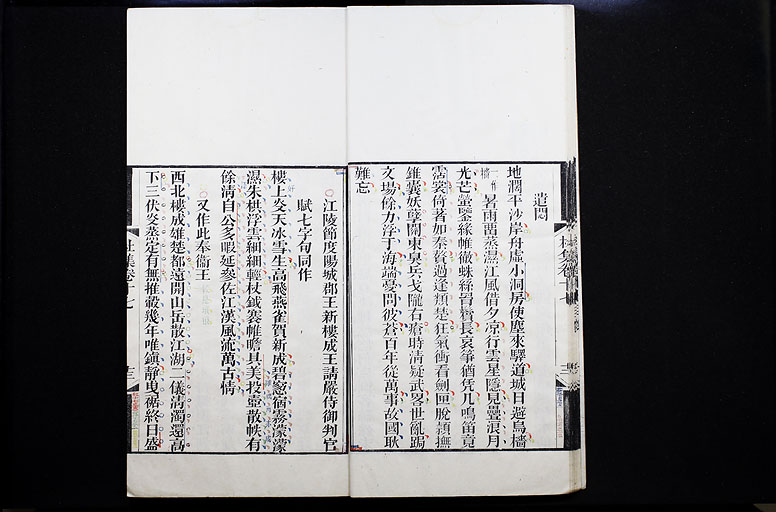 遣悶
地濶平沙岸舟虛小洞房使塵來驛道城日避烏檣
一作檣
暑雨留蒸濕江風借夕凉行雲星隱見疊浪月
光芒螢鑒緣帷徹蛛絲罥鬢長哀箏猶凭几鳴笛竟
霑裳倚著如秦贅過逢類楚狂氣衝看劒匣脫穎撫
錐囊妖孽關東臭兵戈隴右瘡時清疑武畧世亂跼
文場餘力浮于海端憂問彼蒼百年從萬事故國耿
難忘
杜集卷十七
江陵節度陽城郡王新樓成王請嚴侍御判官
賦七字句同作
樓上炎天冰雪生高飛燕雀賀新成碧窻宿霧濛濛
濕朱栱浮雲細細輕杖鉞褰帷瞻具美投壺散帙有
餘清自公多暇延參佐江漢風流萬古情
又作此奉衞王
西北樓成雄楚都遠開山岳散江湖二儀清濁還高
下三伏炎蒸定有無推轂幾年唯鎭靜曳裾終日盛
杜集卷十七